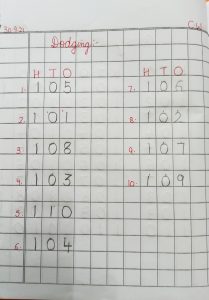 30.9.21 C.W
Dodging:-
H T O
1. 105
2. 101
3. 108
4. 103
5. 110
6. 104
H T O
7. 106
8. 102
9. 107
10. 109